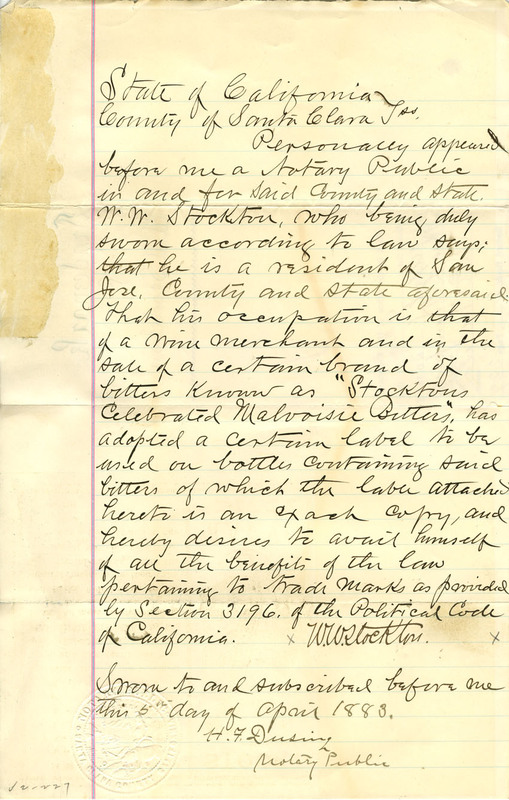 State of California
County of Santa Clara } ss.
Personally appeared
before me a Notary Public
in and for said County and State.
W. W. Stockton, who being duly
sworn according to law says;
that he is a resident of San
Jose, County and State aforesaid.
That his occupation is that
of a wine merchant and in the
sale of a certain brand of
bitters known as "Stocktons
Celebrated Malvoisie Bitters", has
adopted a certain label to be
used on bottles containing said
bitters of which the label attached
hereto is an exact copy, and
hereby desires to avail himself
of all the benefits of the law
pertaining to trade marks as provided
by Section 3196. of the Political Code
of California. x WWStockton. x
Sworn to and subscribed before me
this 5th day of April 1883.
H. F. Dusing
Notary Public